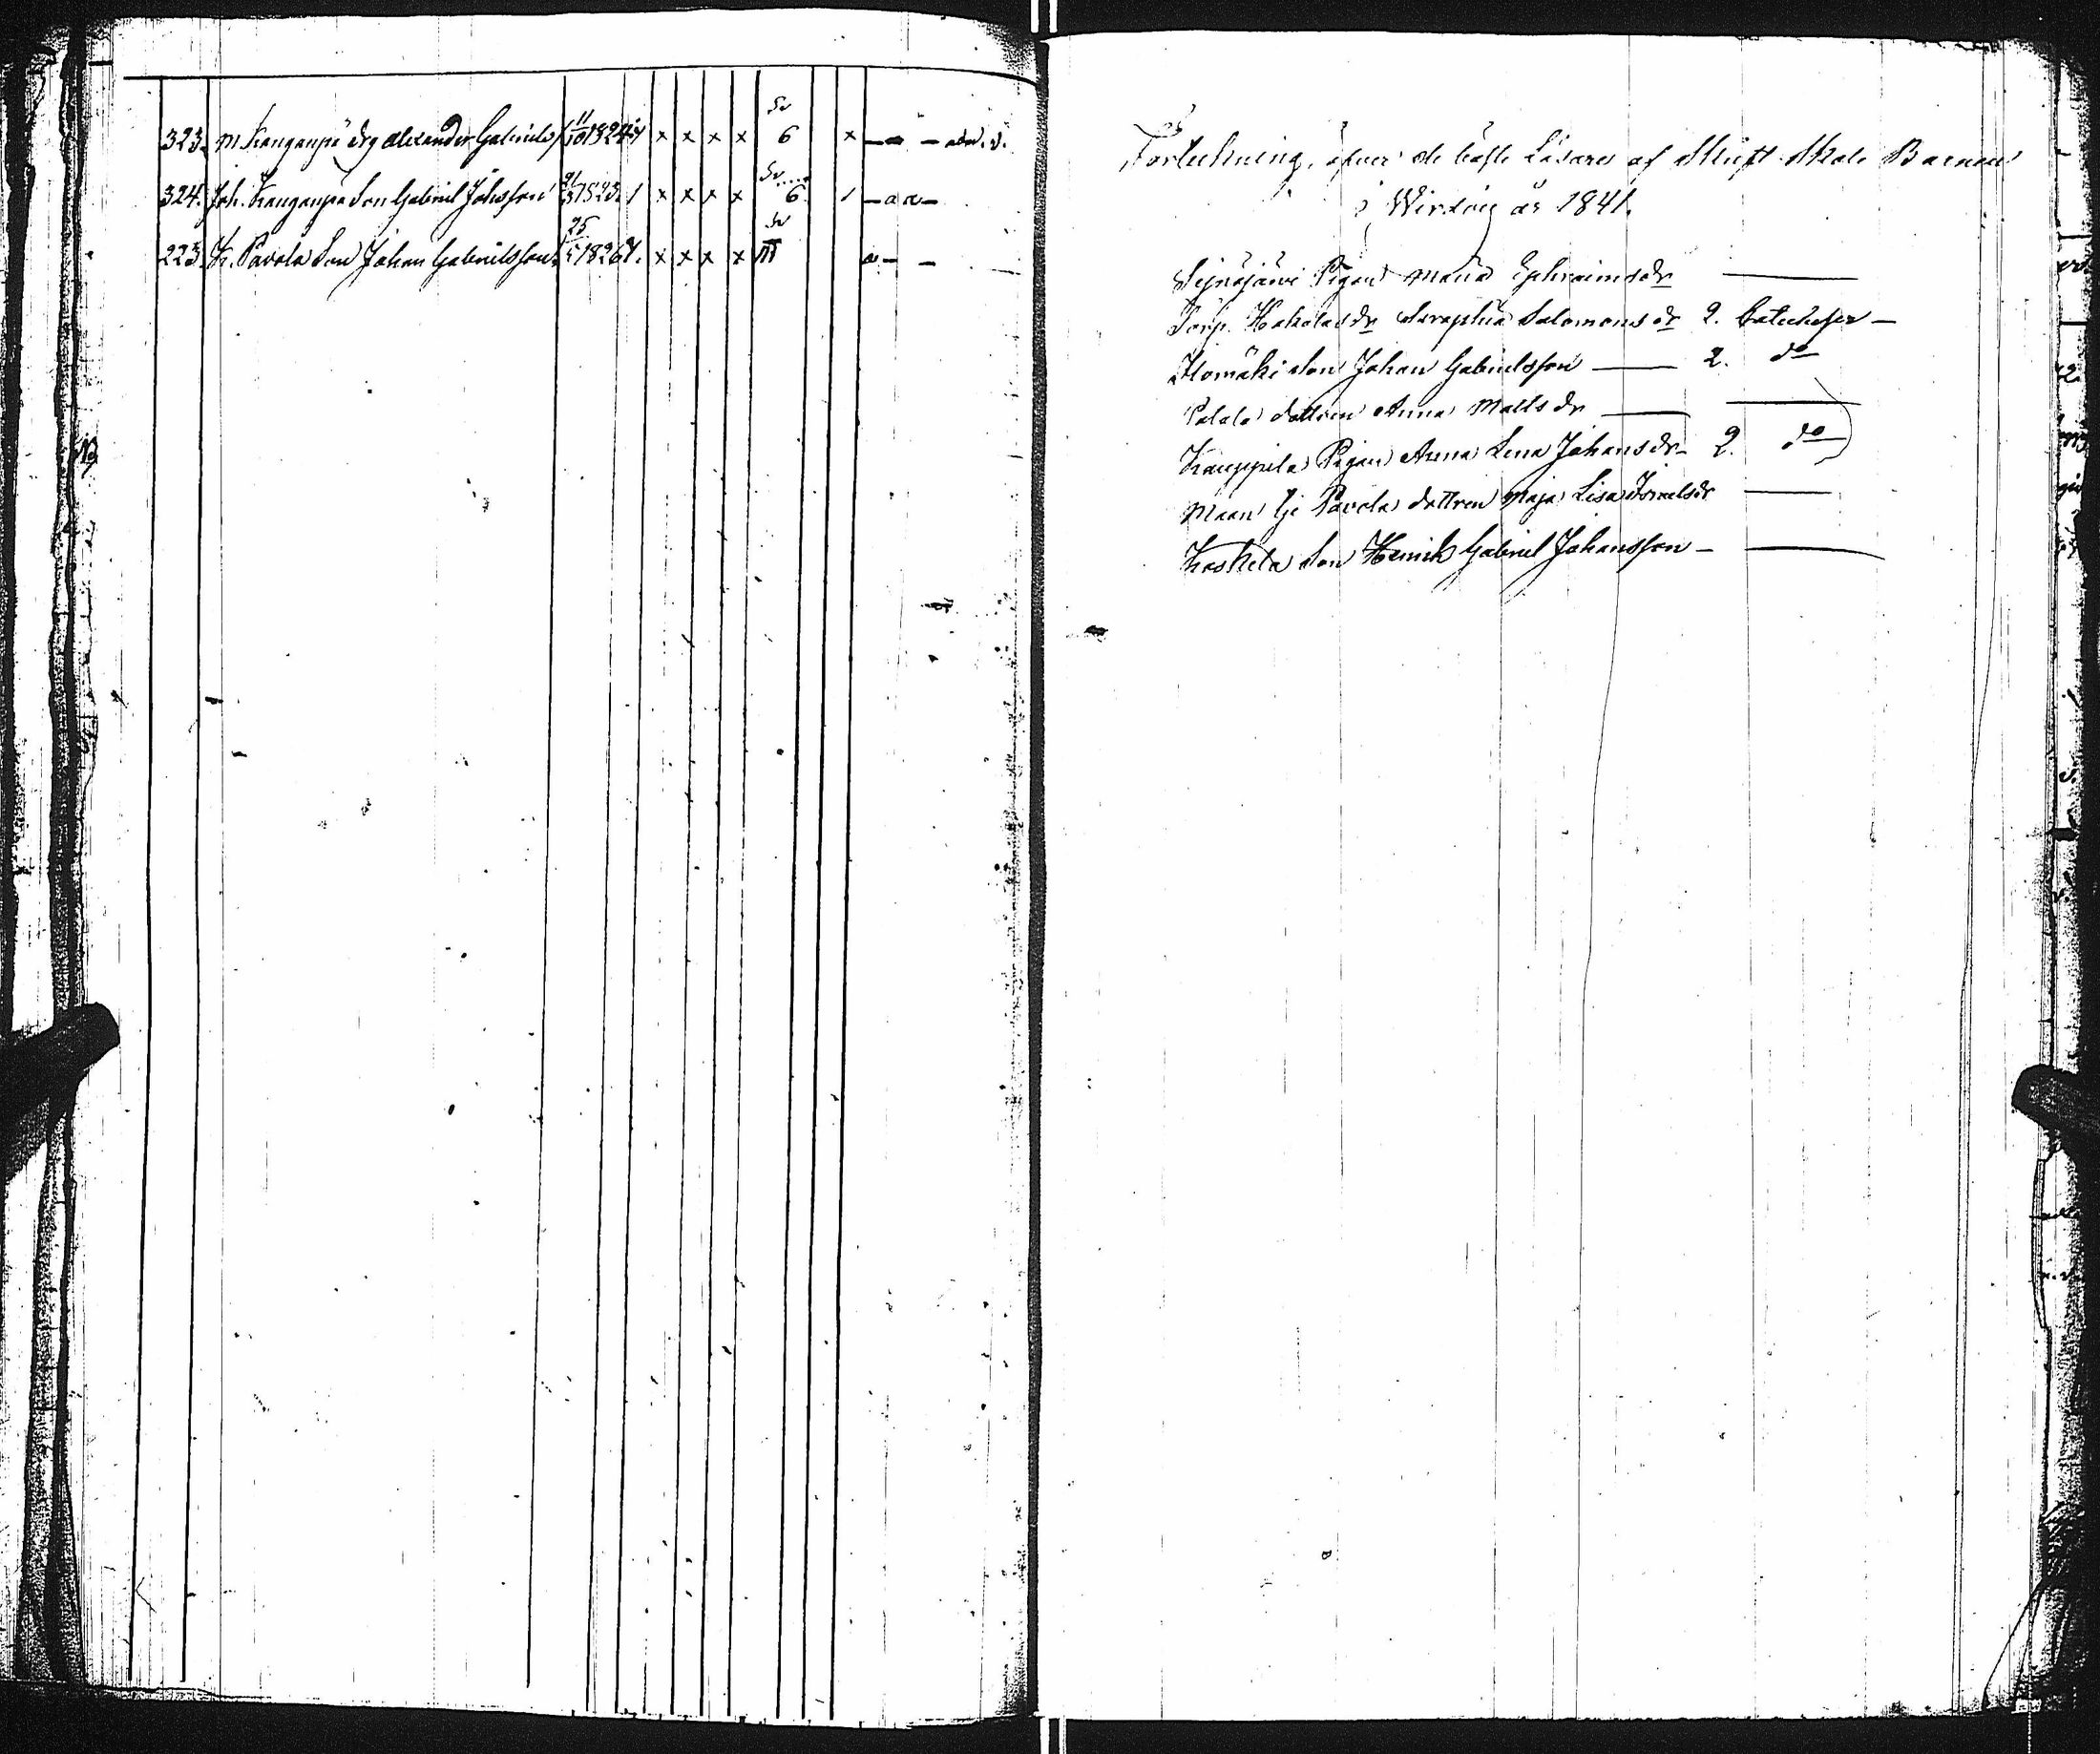 323. M. Kanganpä drg Alexander Gabriels 11/10 1824 x x x x Sv 6 x — a —
324. Joh. Kanganpä Son Gabriel Johsson 21/3 1823. 1 x x x x Sv 6 1 — a a —
223. K. Pavola Son Johan Gabrielsson 25 1826 x x x x Sv III a — —
Förteckning, öfver de bäste Läsare af Skrift Skole Barnen
i Wirdois år 1841.
Pigan Maria Ephraimsdr —
Torp. Hakolas dr Seraphia Salomonsdr 2. Catecheser —
Ilomäki Son Johan Gabrielsson — 2. do
dottren Anna Mattsdr —
Kauppila Pigan Anna Lena Johansdr — 2. do
Pavola dottren Maja Lisa Israelsdr —
Koskela Son Henrik Gabriel Johansson —